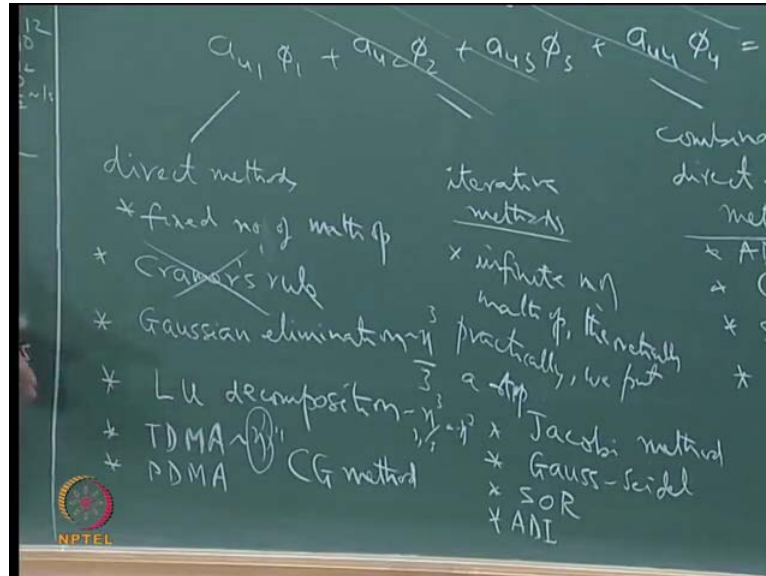 a₄₁ φ₁ + a₄₂ φ₂ + a₄₃ φ₃ + a₄₄ φ₄ =
direct methods
* fixed no. of math op
* Cramer's rule
* Gaussian elimination ~ n³/3
* LU decomposition ~ n³
* TDMA ~ n
* PDMA
CG method
iterative
methods
* infinite no of
math op, theoretically
practically, we put
a stop
* Jacobi method
* Gauss-Seidel
* SOR
* ADI
combina
direct
met
* AD
NPTEL